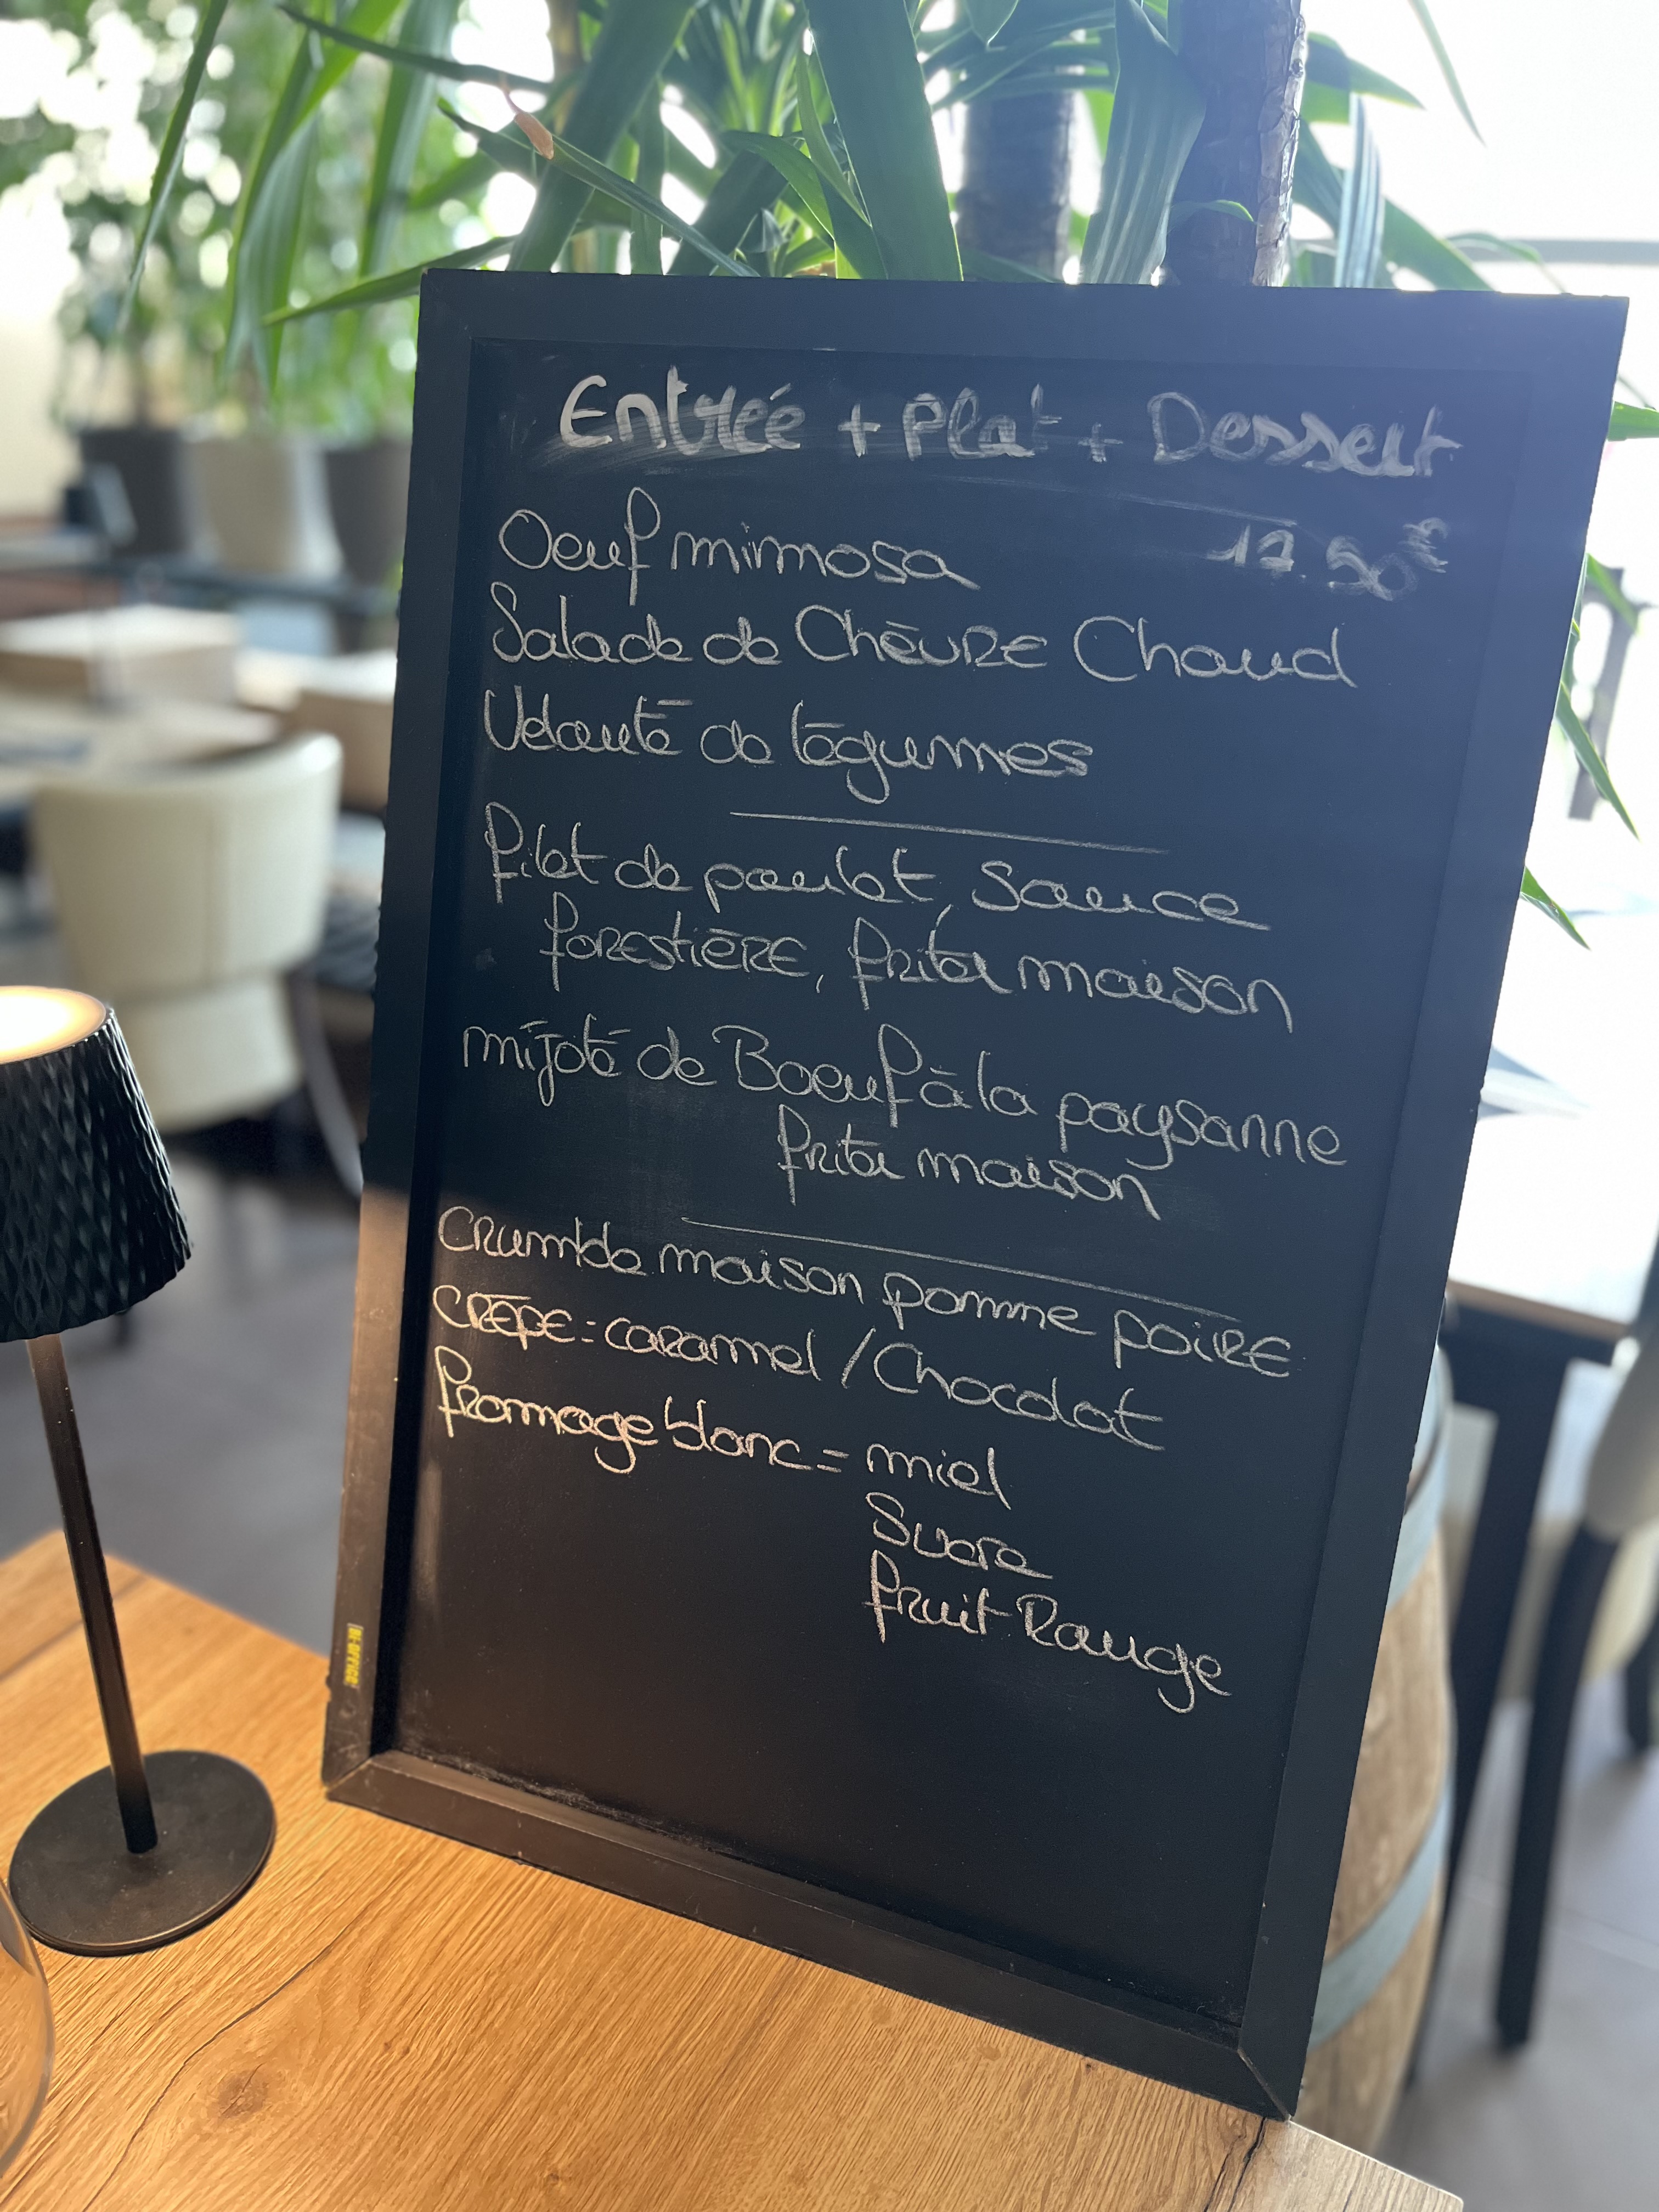 Entrée + Plat + Dessert
Oeuf mimosa 17.50€
Salade de Chèvre Chaud
Velouté de légumes
filet de poulet, Sauce
forestière, frites maison
mijoté de Boeuf à la paysanne
frites maison
Crumble maison pomme poire
crêpe = caramel / Chocolat
fromage blanc = miel
Sucre
fruit Rouge
BI-OFFICE